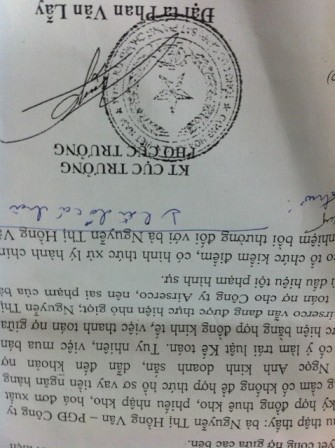 công nợ giữa các bên.
thập thấy: bà Nguyễn Thị Hồng Vân – PGĐ Công ty
ký hợp đồng thuê kho, phiếu nhập kho, hoá đơn xuất
cầm cố khống để hợp thức hồ sơ vay tiền ngân hàng
Ngọc Anh kinh doanh sản, dẫn đến khoản nợ
có ý làm trái luật Kế toán. Tuy nhiên, việc mua bán
hiện bằng hợp đồng kinh tế, việc thanh toán nợ giữa
irserco vẫn đang được thực hiện nhỏ giọt; Nguyễn Thị
toán nợ cho Công ty Airserco, nên sai phạm của bà
dấu hiệu tội phạm hình sự.
co tổ chức kiểm điểm, có hình thức xử lý hành chính
nhiệm bồi thường đối với bà Nguyễn Thị Hồng
KT CỤC TRƯỞNG
PHÓ CỤC TRƯỞNG
Đại tá Phan Văn Lẫy